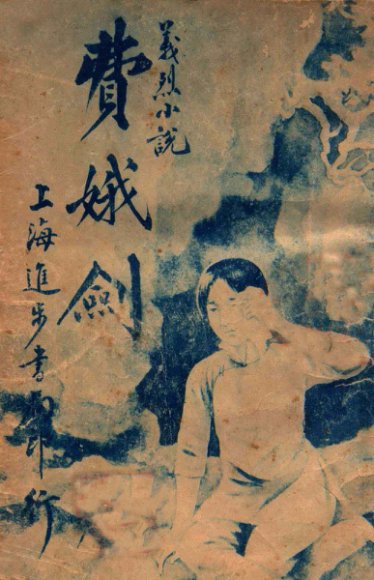 義烈小說
費娥劍
上海進步書局印行